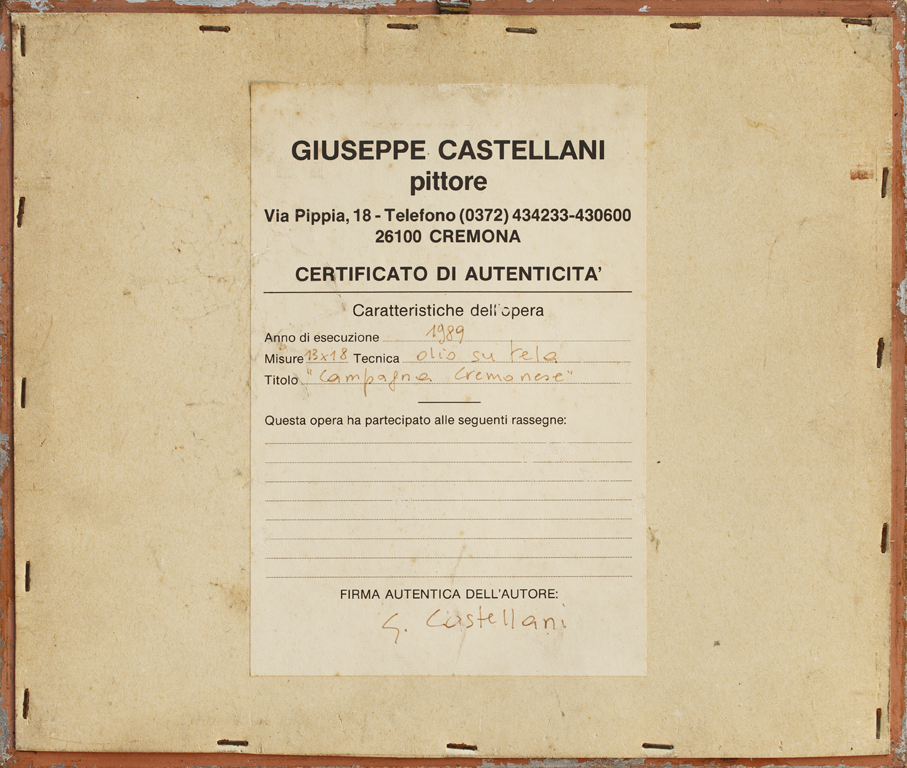 GIUSEPPE CASTELLANI
pittore
Via Pippia, 18 - Telefono (0372) 434233-430600
26100 CREMONA
CERTIFICATO DI AUTENTICITA'
Caratteristiche dell'opera
Anno di esecuzione 1989
Misure 13x18 Tecnica olio su tela
Titolo "Campagna Cremonese"
Questa opera ha partecipato alle seguenti rassegne:
FIRMA AUTENTICA DELL'AUTORE:
G. Castellani